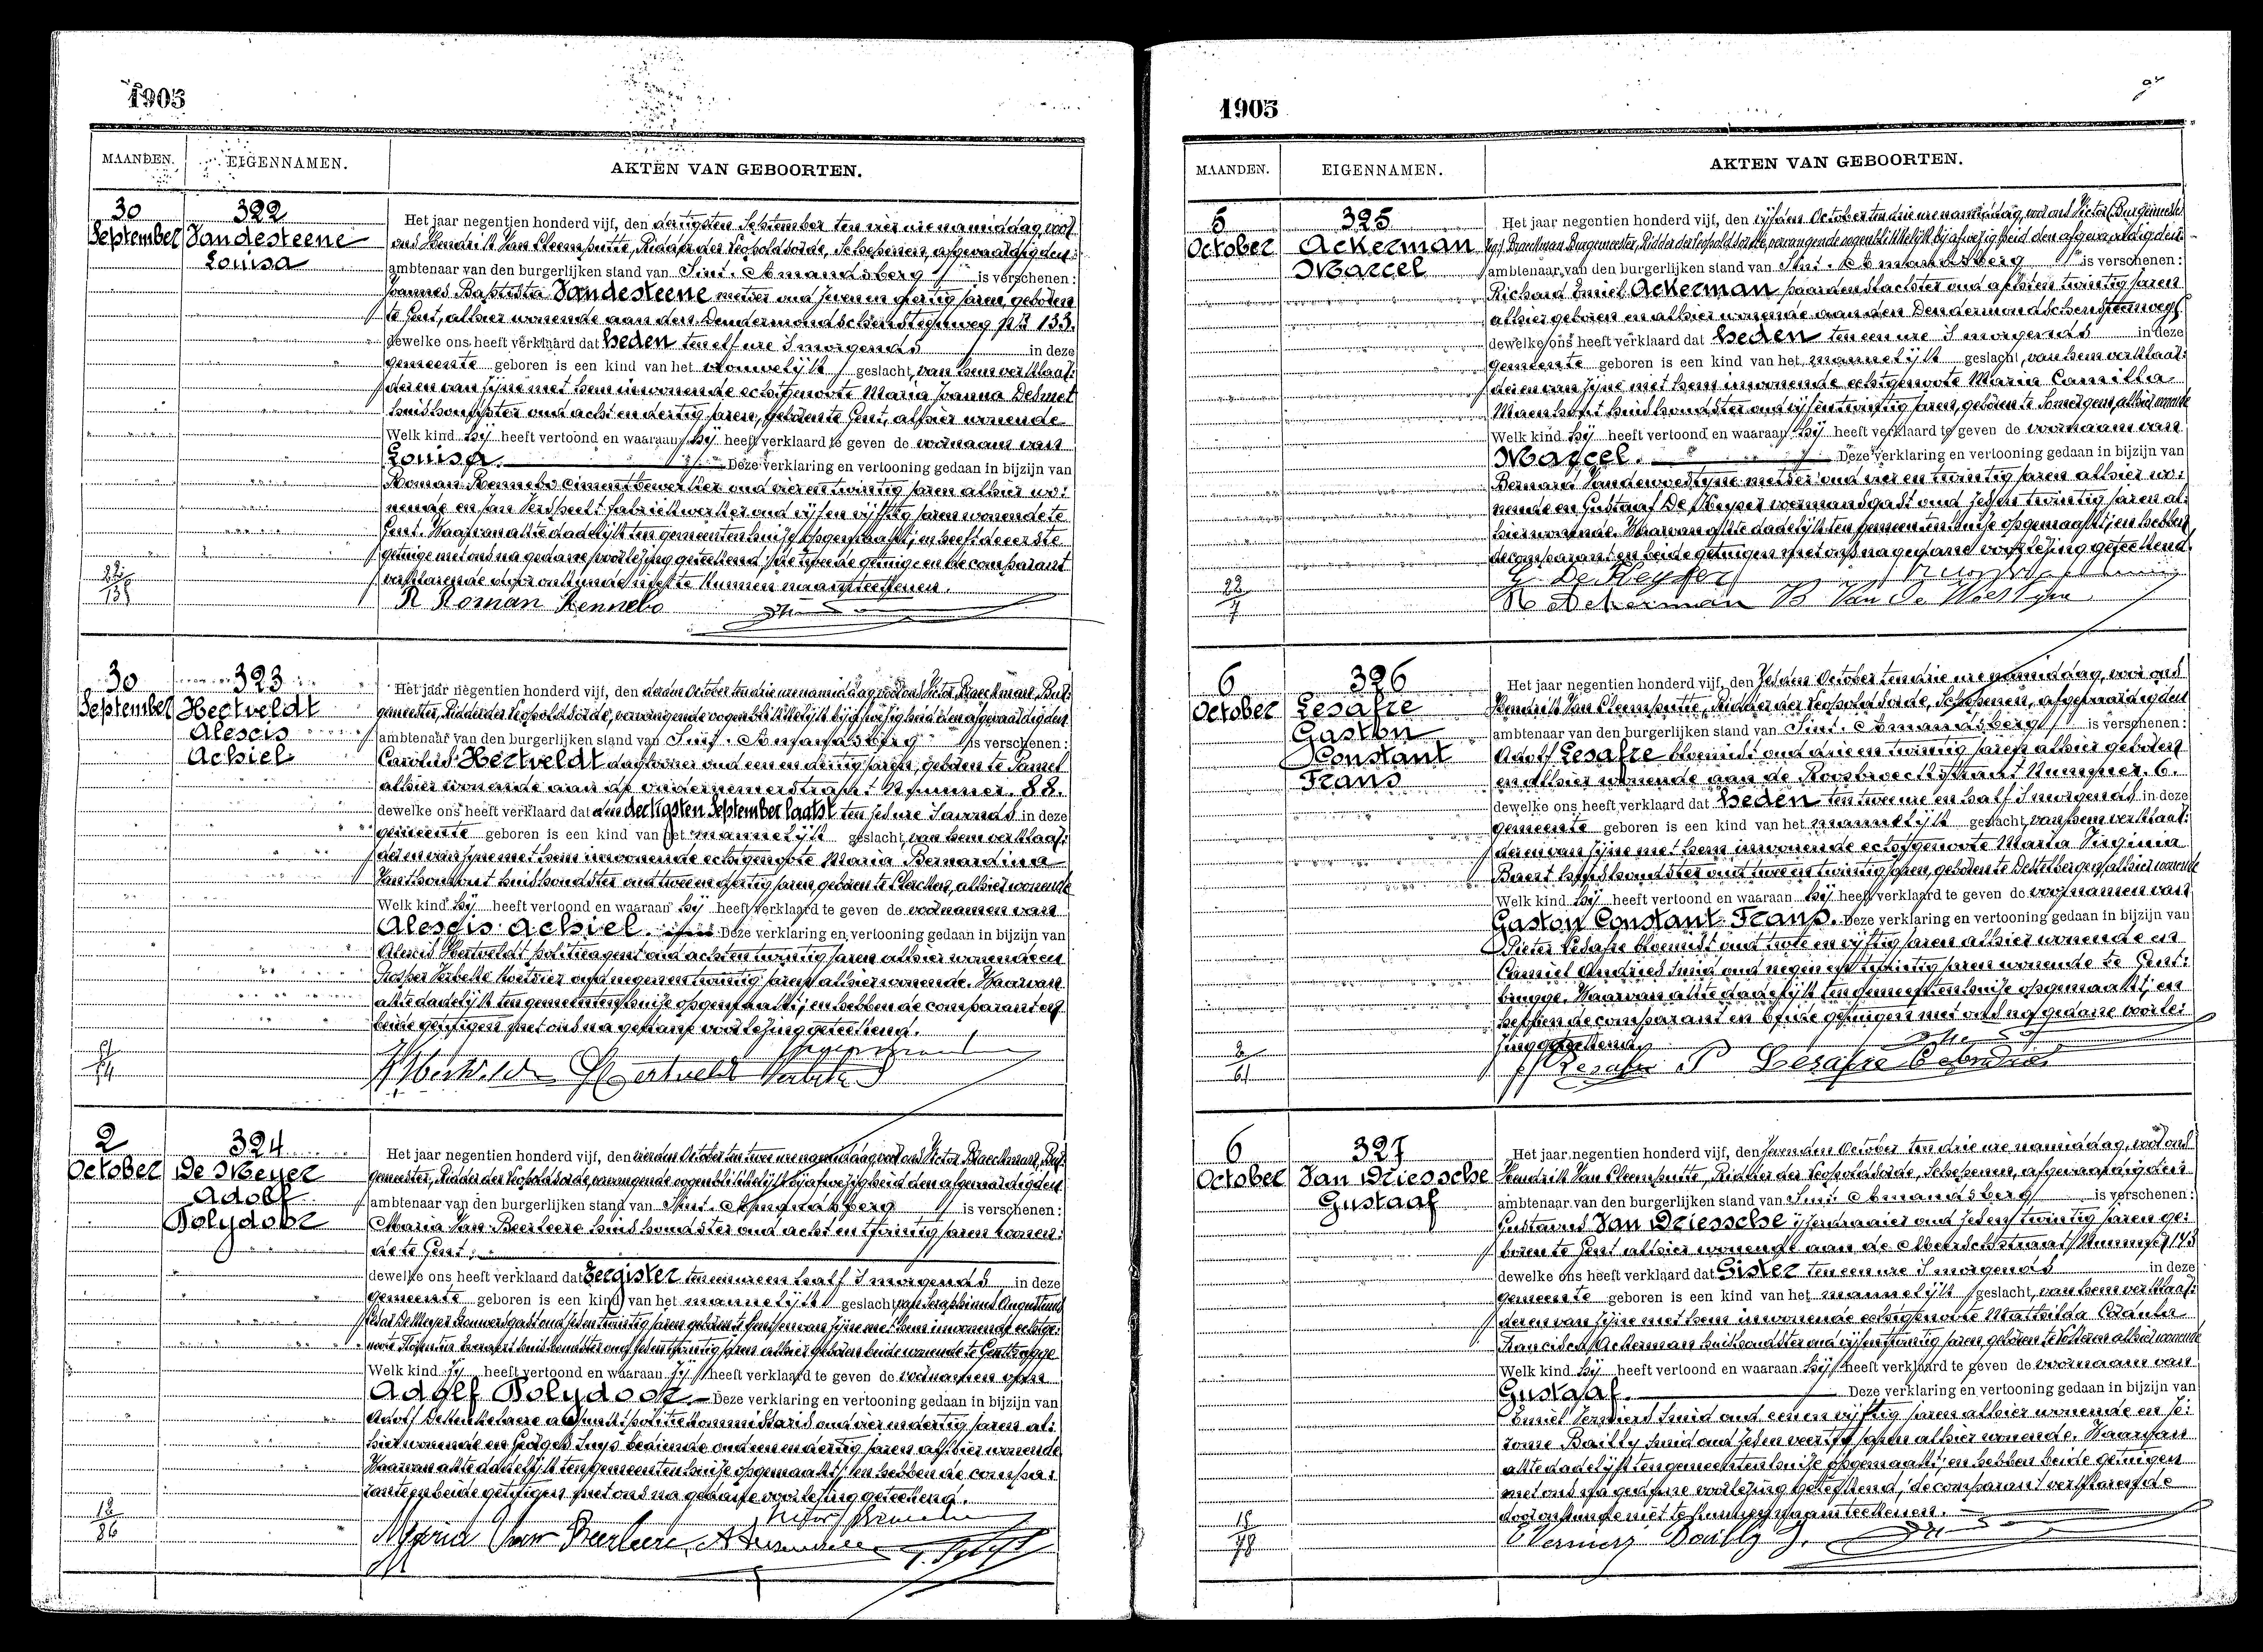 1905
MAANDEN. EIGENNAMEN. AKTEN VAN GEBOORTEN.
30 September
322
Vandesteene
Louisa
Het jaar negentien honderd vijf, den dertigsten September ten vier ure namiddag, voor
ons Hendrik Van Cleemputte, Ridder der Leopoldsorde, Schepenen, afgevaardigden
ambtenaar van den burgerlijken stand van Sint-Amandsberg is verschenen:
Joannes Baptista Vandesteene metser oud zeven en dertig jaren, geboren
te Gent, alhier wonende aan den Dendermondschensteenweg No 133.
dewelke ons heeft verklaard dat heden ten elf ure 's morgends in deze
gemeente geboren is een kind van het vrouwelijk geslacht, van hem verklaar:
der en van zijne met hem inwonende echtgenoote Maria Joanna Desmet
huishoudster oud acht en dertig jaren, geboren te Gent, alhier wonende
Welk kind hij heeft vertoond en waaraan hij heeft verklaard te geven de voornaam van
Louisa. Deze verklaring en vertooning gedaan in bijzijn van
Roman Rennebo cimentbewerker oud vier en twintig jaren alhier wo:
nende en Jan Verspeelt fabriekwerker oud vijf en vijftig jaren wonende te
Gent. Waarvan akte dadelijk ten gemeentenhuize opgemaakt; en heeft de eerste
getuige met ons na gedane voorlezing geteekend, de tweede getuige en de comparant
verklarende door onkunde niet te kunnen naamteekenen.
R Roman Rennebo
30 September
323
Hertveldt
Alexis
Achiel
Het jaar negentien honderd vijf, den derden October ten drie ure namiddag voor ons Victor Braeckman, Bur:
gemeester, Ridder der Leopoldsorde, vervangende oogenblikkelijk bij afwezigheid den afgevaardigden
ambtenaar van den burgerlijken stand van Sint-Amandsberg is verschenen:
Carolus Hertveldt dagloner oud een en dertig jaren, geboren te Pamel
alhier wonende aan de ondernemerstraat Nummer 88.
dewelke ons heeft verklaard dat den dertigsten September laatst ten zes ure 's avonds in deze
gemeente geboren is een kind van het mannelijk geslacht, van hem verklaar:
der en van zijne met hem inwonende echtgenoote Maria Bernardina
huishoudster oud twee en dertig jaren, geboren te Clercken, alhier wonende
Welk kind hij heeft vertoond en waaraan hij heeft verklaard te geven de voornamen van
Alexis Achiel. Deze verklaring en vertooning gedaan in bijzijn van
Alexis Hertveldt politieagent oud acht en twintig jaren alhier wonende en
Prosper Verbeke koetsier oud negen en twintig jaren alhier wonende. Waarvan
akte dadelijk ten gemeentenhuize opgemaakt; en hebben de comparant en
beide getuigen met ons na gedane voorlezing geteekend.
2 October
324
De Meyer
Adolf
Polydoor
Het jaar negentien honderd vijf, den vierden October ten twee ure namiddag voor ons Victor Braeckman, Bur:
gemeester, Ridder der Leopoldsorde, vervangende oogenblikkelijk bij afwezigheid den afgevaardigden
ambtenaar van den burgerlijken stand van Sint-Amandsberg is verschenen:
Maria Van Beerleere huishoudster oud acht en twintig jaren wonen:
de te Gent;
dewelke ons heeft verklaard dat Eergister ten een ure en half 's morgends in deze
gemeente geboren is een kind van het mannelijk geslacht van Seraphinus Augustinus
Cesar De Meyer brouwersgast oud zes en twintig jaren geboren te Gent en van zijne met hem inwonende echtge:
noote huishoudster oud zes en twintig jaren alhier geboren beide wonende te Gentbrugge
Welk kind zij heeft vertoond en waaraan zij heeft verklaard te geven de voornamen van
Adolf Polydoor. Deze verklaring en vertooning gedaan in bijzijn van
Adolf adjunkt politiekommissaris oud vier en dertig jaren al:
hier wonende en Georges Buys bediende oud een en dertig jaren alhier wonende
Waarvan akte dadelijk ten gemeentenhuize opgemaakt; en hebben de compa:
rante en beide getuigen met ons na gedane voorlezing geteekend.
Maria Van Beerleere
1905
MAANDEN. EIGENNAMEN. AKTEN VAN GEBOORTEN.
5 October
325
Ackerman
Marcel
Het jaar negentien honderd vijf, den vijfden October ten drie ure namiddag, voor ons Victor
Braeckman Burgemeester, Ridder der Leopoldsorde, vervangende oogenblikkelijk bij afwezigheid den afgevaardigden
ambtenaar van den burgerlijken stand van Sint-Amandsberg is verschenen:
Richard Emiel Ackerman paardenslachter oud acht en twintig jaren
alhier geboren en alhier wonende aan den Dendermondschensteenweg
dewelke ons heeft verklaard dat heden ten een ure 's morgends in deze
gemeente geboren is een kind van het mannelijk geslacht, van hem verklaar:
der en van zijne met hem inwonende echtgenoote Maria Camilla
Maenhout huishoudster oud vijf en twintig jaren, geboren te Somergem, alhier wonende
Welk kind hij heeft vertoond en waaraan hij heeft verklaard te geven de voornaam van
Marcel. Deze verklaring en vertooning gedaan in bijzijn van
Bernard Vandewoestyne metser oud vier en twintig jaren alhier wo:
nende en Gustaaf De Keyser voermansgast oud zes en twintig jaren al:
hier wonende. Waarvan akte dadelijk ten gemeentenhuize opgemaakt; en hebben
de comparant en beide getuigen met ons na gedane voorlezing geteekend.
G De Keyser
R Ackerman B Van De Woestyne
6 October
326
Lesafre
Gaston
Constant
Frans
Het jaar negentien honderd vijf, den zesden October ten drie ure namiddag, voor ons
Hendrik Van Cleemputte, Ridder der Leopoldsorde, Schepenen, afgevaardigden
ambtenaar van den burgerlijken stand van Sint-Amandsberg is verschenen:
Adolf Lesafre bloemist oud drie en twintig jaren alhier geboren
en alhier wonende aan de Roosbroeckstraat Nummer 6.
dewelke ons heeft verklaard dat heden ten twee ure en half 's morgends in deze
gemeente geboren is een kind van het mannelijk geslacht, van hem verklaar:
der en van zijne met hem inwonende echtgenoote Maria Virginia
Baert huishoudster oud twee en twintig jaren, geboren te Destelbergen, alhier wonende
Welk kind hij heeft vertoond en waaraan hij heeft verklaard te geven de voornamen van
Gaston Constant Frans. Deze verklaring en vertooning gedaan in bijzijn van
Pieter Lesafre bloemist oud twee en vijftig jaren alhier wonende en
Camiel Andries smid oud negen en twintig jaren wonende te Gent:
brugge. Waarvan akte dadelijk ten gemeentenhuize opgemaakt; en
hebben de comparant en beide getuigen met ons na gedane voorle:
zing geteekend.
Lesafre P Lesafre C Andries
6 October
327
Van Driessche
Gustaaf
Het jaar negentien honderd vijf, den zevenden October ten drie ure namiddag, voor ons
Hendrik Van Cleemputte, Ridder der Leopoldsorde, Schepenen, afgevaardigden
ambtenaar van den burgerlijken stand van Sint-Amandsberg is verschenen:
Gustavus Van Driessche ijzerdraaier oud zes en twintig jaren ge:
boren te Gent alhier wonende aan de Meerschstraat Nummer 143
dewelke ons heeft verklaard dat Gister ten een ure 's morgends in deze
gemeente geboren is een kind van het mannelijk geslacht, van hem verklaar:
der en van zijne met hem inwonende echtgenoote Mathilda Coleta
Francisca Ackerman huishoudster oud vijf en twintig jaren, geboren te alhier wonende
Welk kind hij heeft vertoond en waaraan hij heeft verklaard te geven de voornaam van
Gustaaf. Deze verklaring en vertooning gedaan in bijzijn van
Emiel Vermiers smid oud een en vijftig jaren alhier wonende en Je:
rome Bailly smid oud zes en veertig jaren alhier wonende. Waarvan
akte dadelijk ten gemeentenhuize opgemaakt; en hebben beide getuigen
met ons na gedane voorlezing geteekend, de comparant verklarende
door onkunde niet te kunnen naamteekenen.